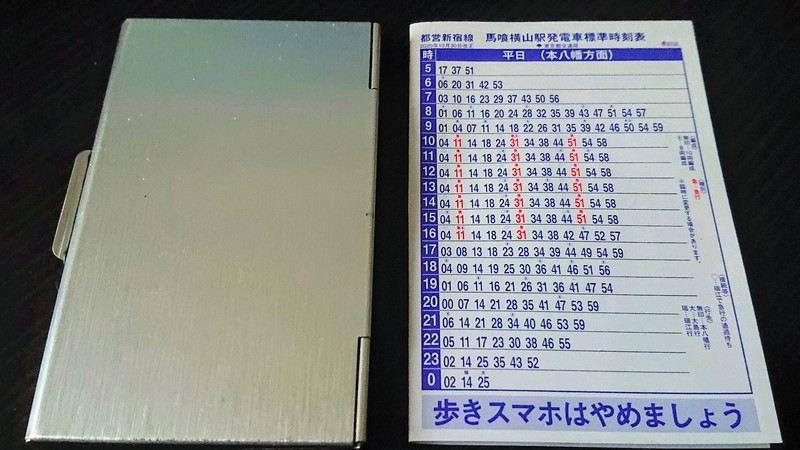 都営新宿線 馬喰横山駅発電車標準時刻表
2020年10月30日改正 東京都交通局
時 平日 (本八幡方面)
5 17 37 51
6 06 20 31 42 53
7 03 10 16 23 29 37 43 50 56
8 01 06 11 16 20 24 28 32 35 39 43 47 51 54 57
9 01 04 07 11 14 18 22 26 31 35 39 42 46 50 54 59
10 04 11 14 18 24 31 34 38 44 51 54 58
11 04 11 14 18 24 31 34 38 44 51 54 58
12 04 11 14 18 24 31 34 38 44 51 54 58
13 04 11 14 18 24 31 34 38 44 51 54 58
14 04 11 14 18 24 31 34 38 44 51 54 58
15 04 11 14 18 24 31 34 38 44 51 54 58
16 04 11 14 18 24 31 34 38 42 47 52 57
17 03 08 13 18 23 28 34 39 44 49 54 59
18 04 09 14 19 25 30 36 41 46 51 56
19 01 06 11 16 21 26 31 36 41 47 54
20 00 07 14 21 28 35 41 47 53 59
21 06 14 21 28 34 40 46 53 59
22 05 11 17 23 30 38 46 55
23 02 14 25 35 43 52
0 02 14 25
※臨時に変更する場合があります。
(行先)
無印…本八幡行
大…大島行
瑞…瑞江行
歩きスマホはやめましょう